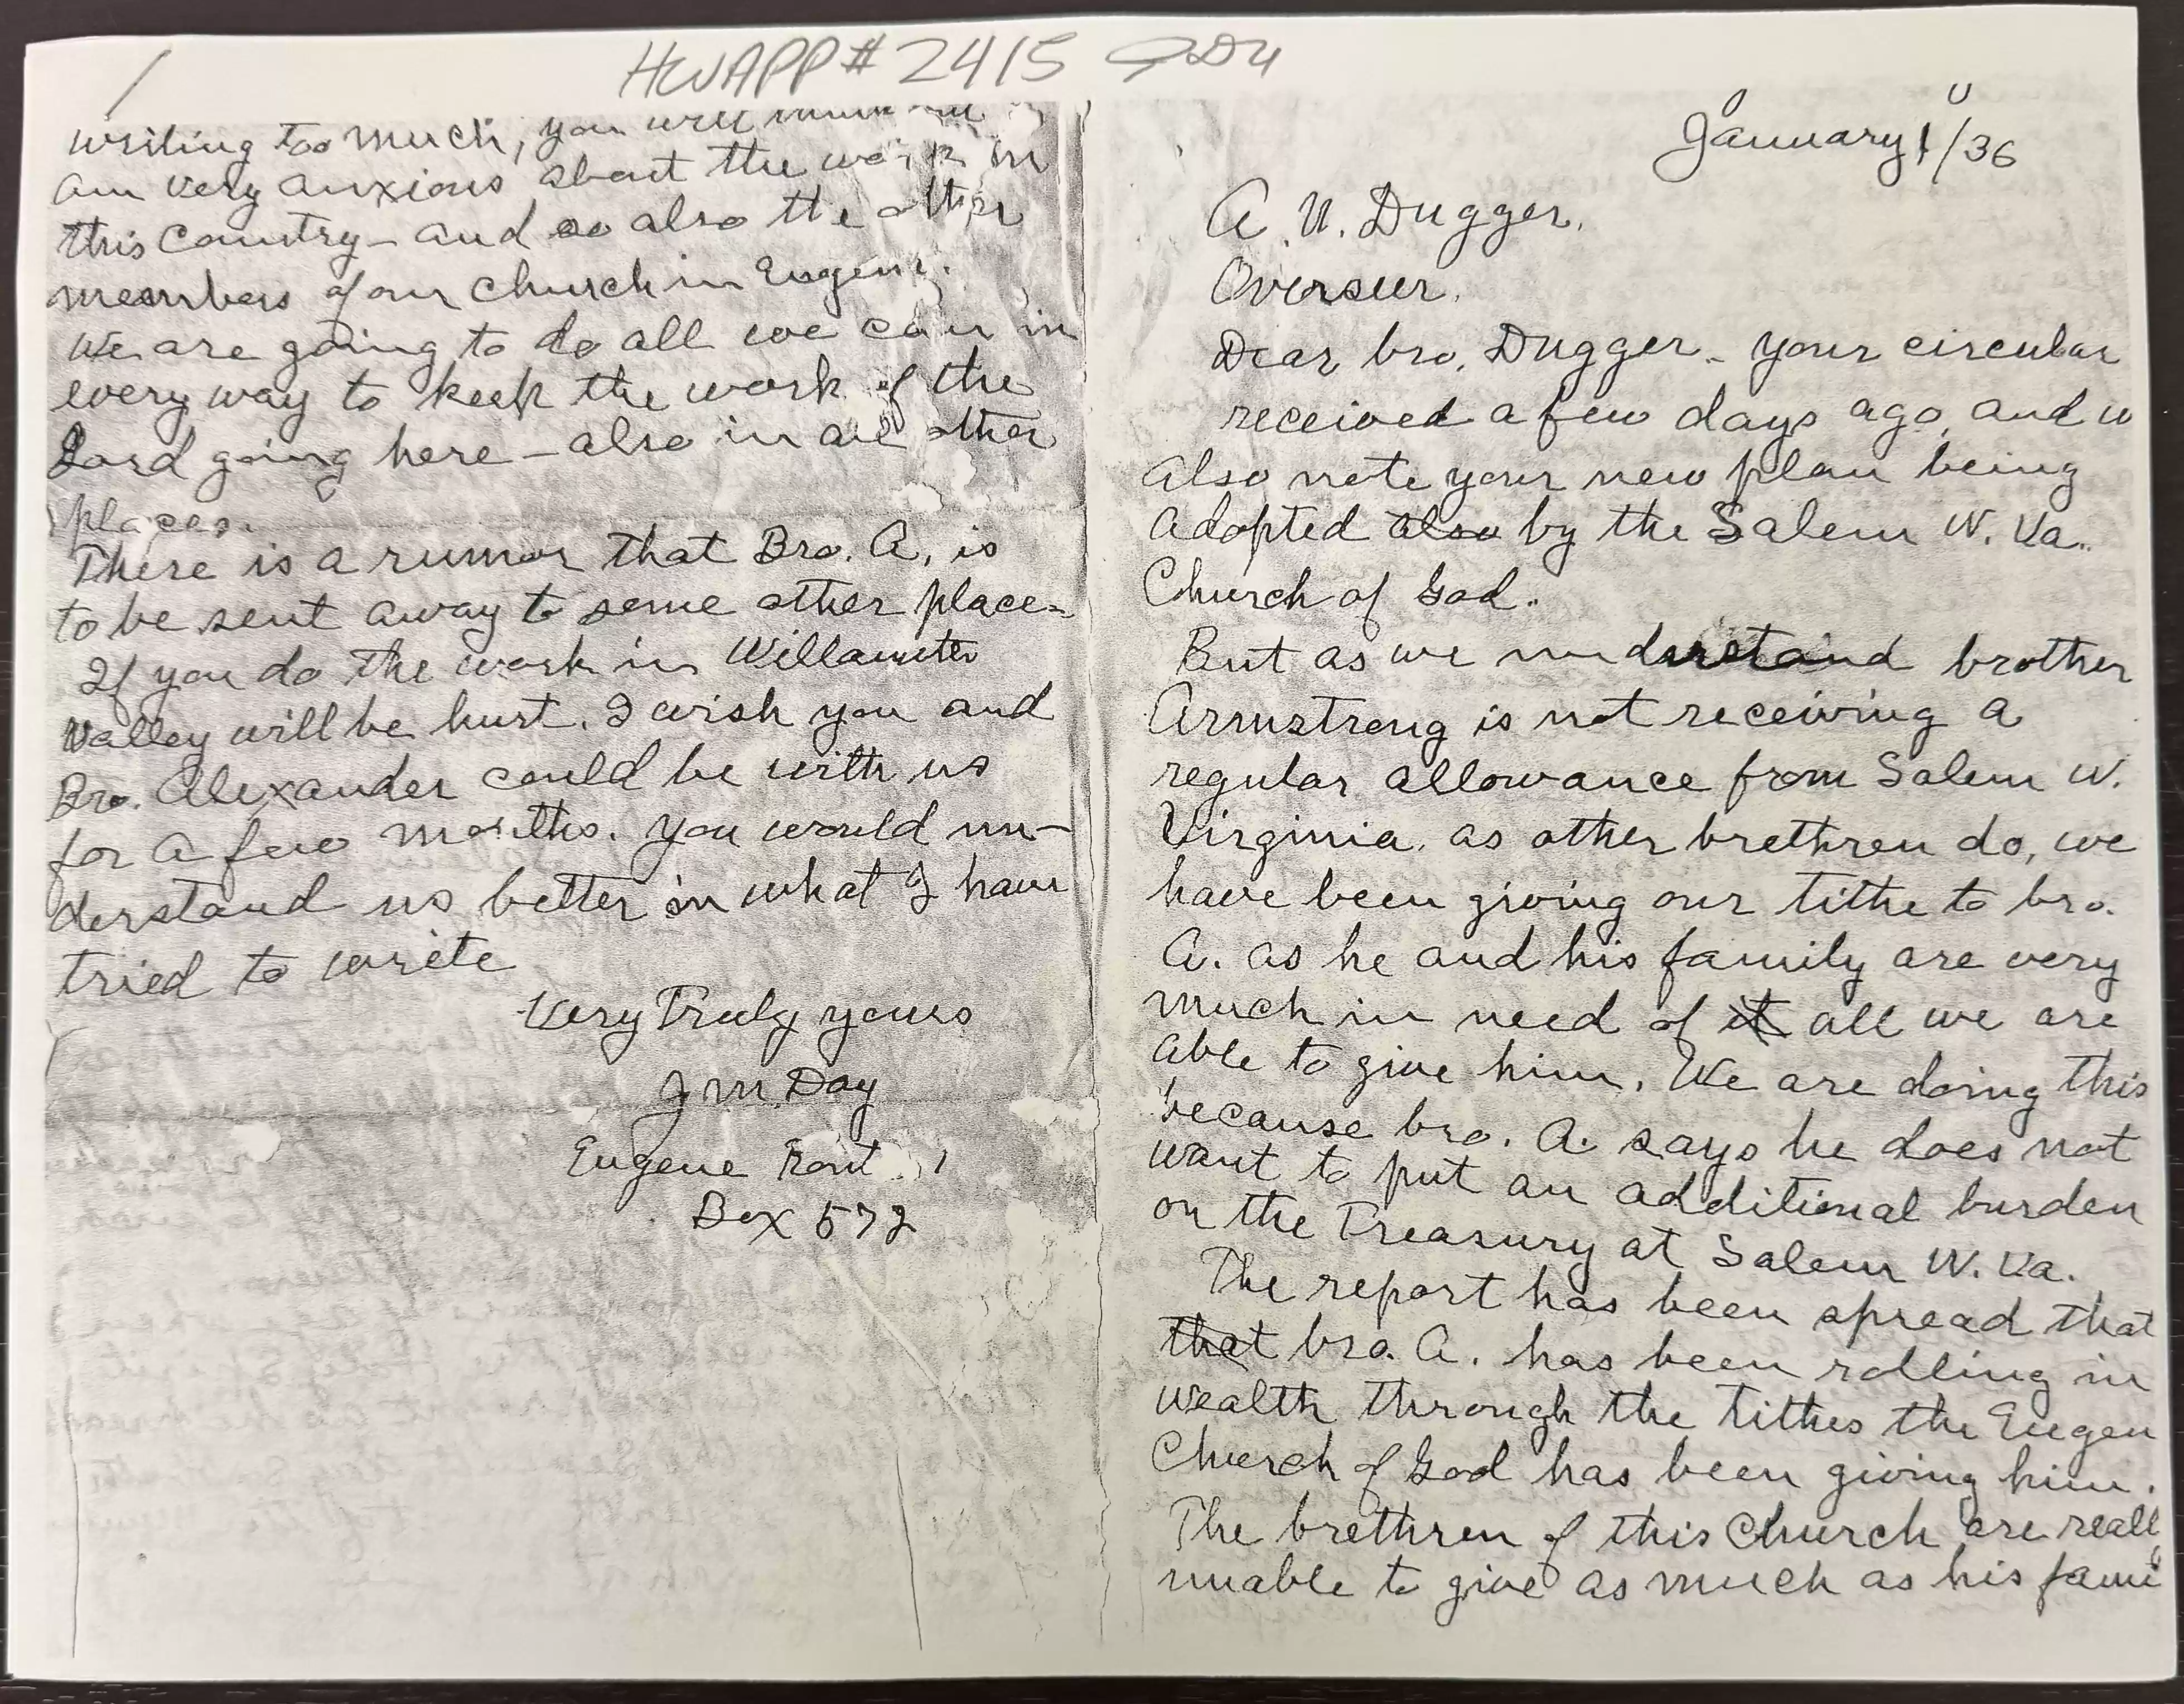 HWAPP# 2415
writing too much, you will
am very anxious about the work in
this Country – and so also the other
members of our church in Eugene.
We are going to do all we can in
every way to keep the work of the
Lord going here – also in all other
places.
There is a rumor that Bro. A. is
to be sent away to some other place –
If you do the work in Willamette
Valley will be hurt. I wish you and
Bro. Alexander could be with us
for a few months. You would un-
derstand us better in what I have
tried to write
Very Truly yours
J M. Day
Eugene Rout 1
Box 572
January 1/36
A. N. Dugger.
Overseer.
Dear bro. Dugger – your circular
received a few days ago, and w
also note your new plan being
adopted also by the Salem W. Va.
Church of God.
But as we understand brother
Armstrong is not receiving a
regular allowance from Salem W.
Virginia. as other brethren do, we
have been giving our tithe to bro.
A. as he and his family are very
much in need of it all we are
able to give him. We are doing this
because bro. A. says he does not
want to put an additional burden
on the Treasury at Salem W. Va.
The report has been spread that
that bro. A. has been rolling in
wealth through the tithes the Eugen
Church of God has been giving him.
The brethren of this Church are reall
unable to give as much as his fami